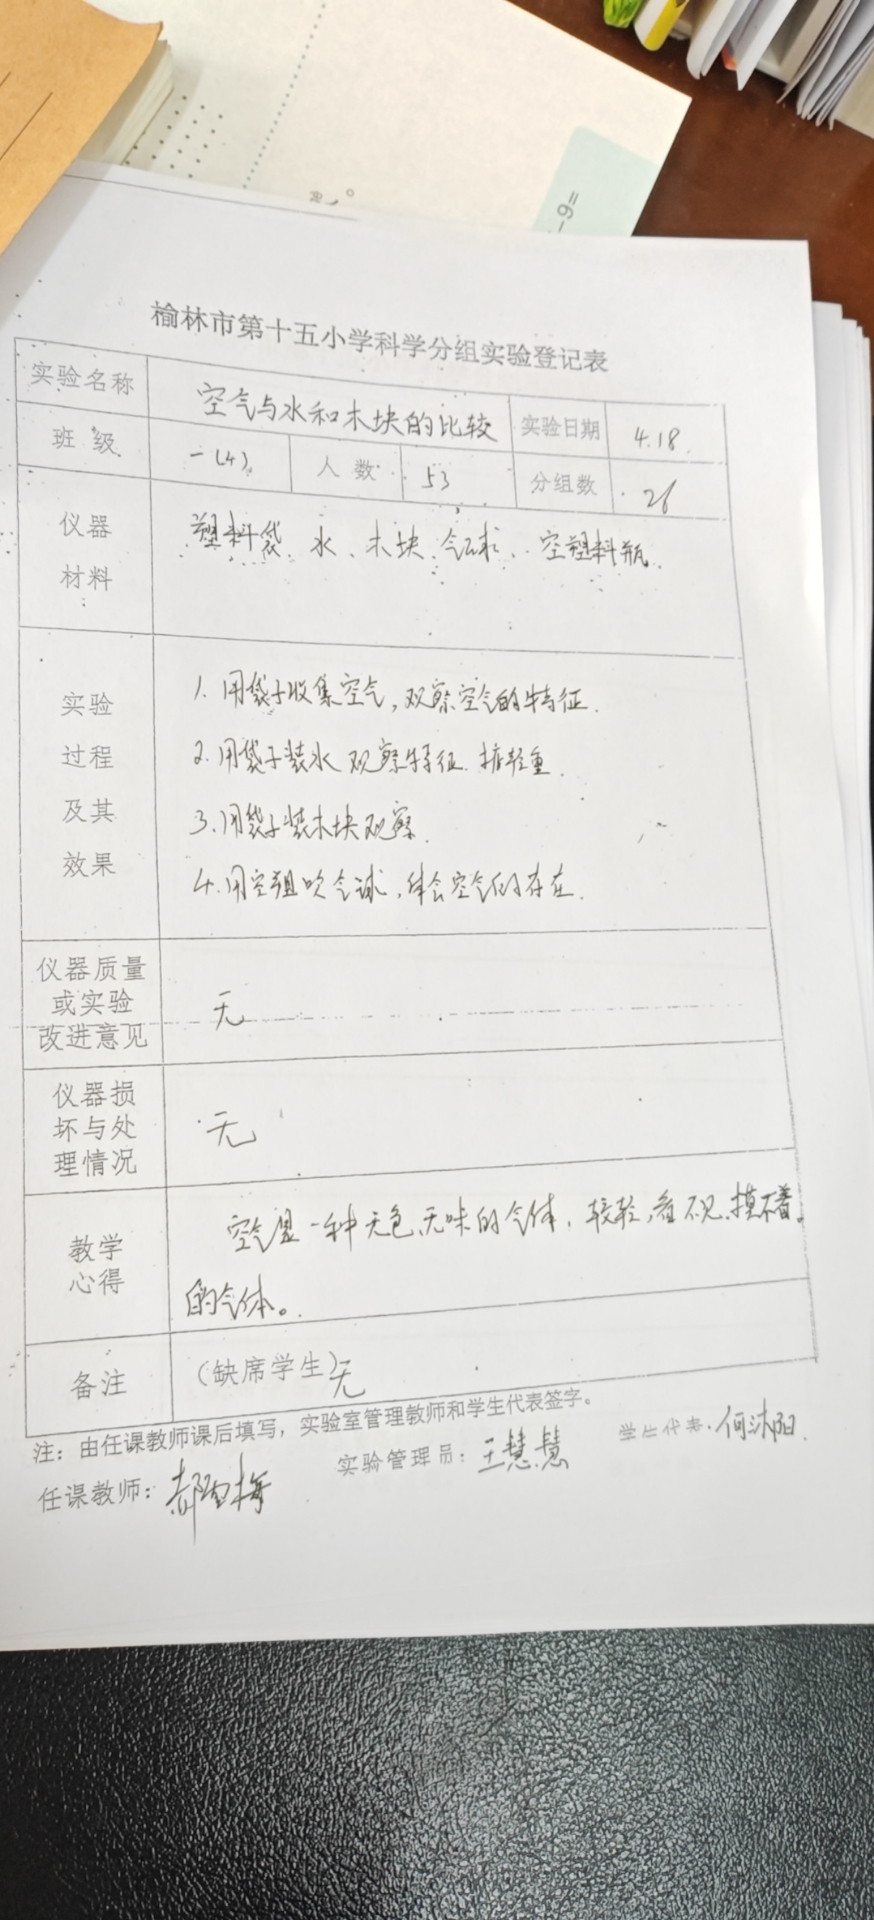 -9=
榆林市第十五小学科学分组实验登记表
实验名称 空气与水和木块的比较 实验日期 4.18.
班级 一(4) 人数 53 分组数 26
仪器
材料
塑料袋、水、木块、气球、空塑料瓶.
实验
过程
及其
效果
1. 用袋子收集空气,观察空气的特征.
2. 用袋子装水 观察特征. 掂轻重.
3. 用袋子装木块观察.
4. 用空 吹气球,体会空气的存在.
仪器质量
或实验
改进意见
无
仪器损
坏与处
理情况
无
教学
心得
空气是一种无色、无味的气体,较轻,看不见、摸不着。
的气体。
备注 (缺席学生)无
注:由任课教师课后填写,实验室管理教师和学生代表签字。
任课教师: 实验管理员:王慧慧 学生代表:何沐阳.